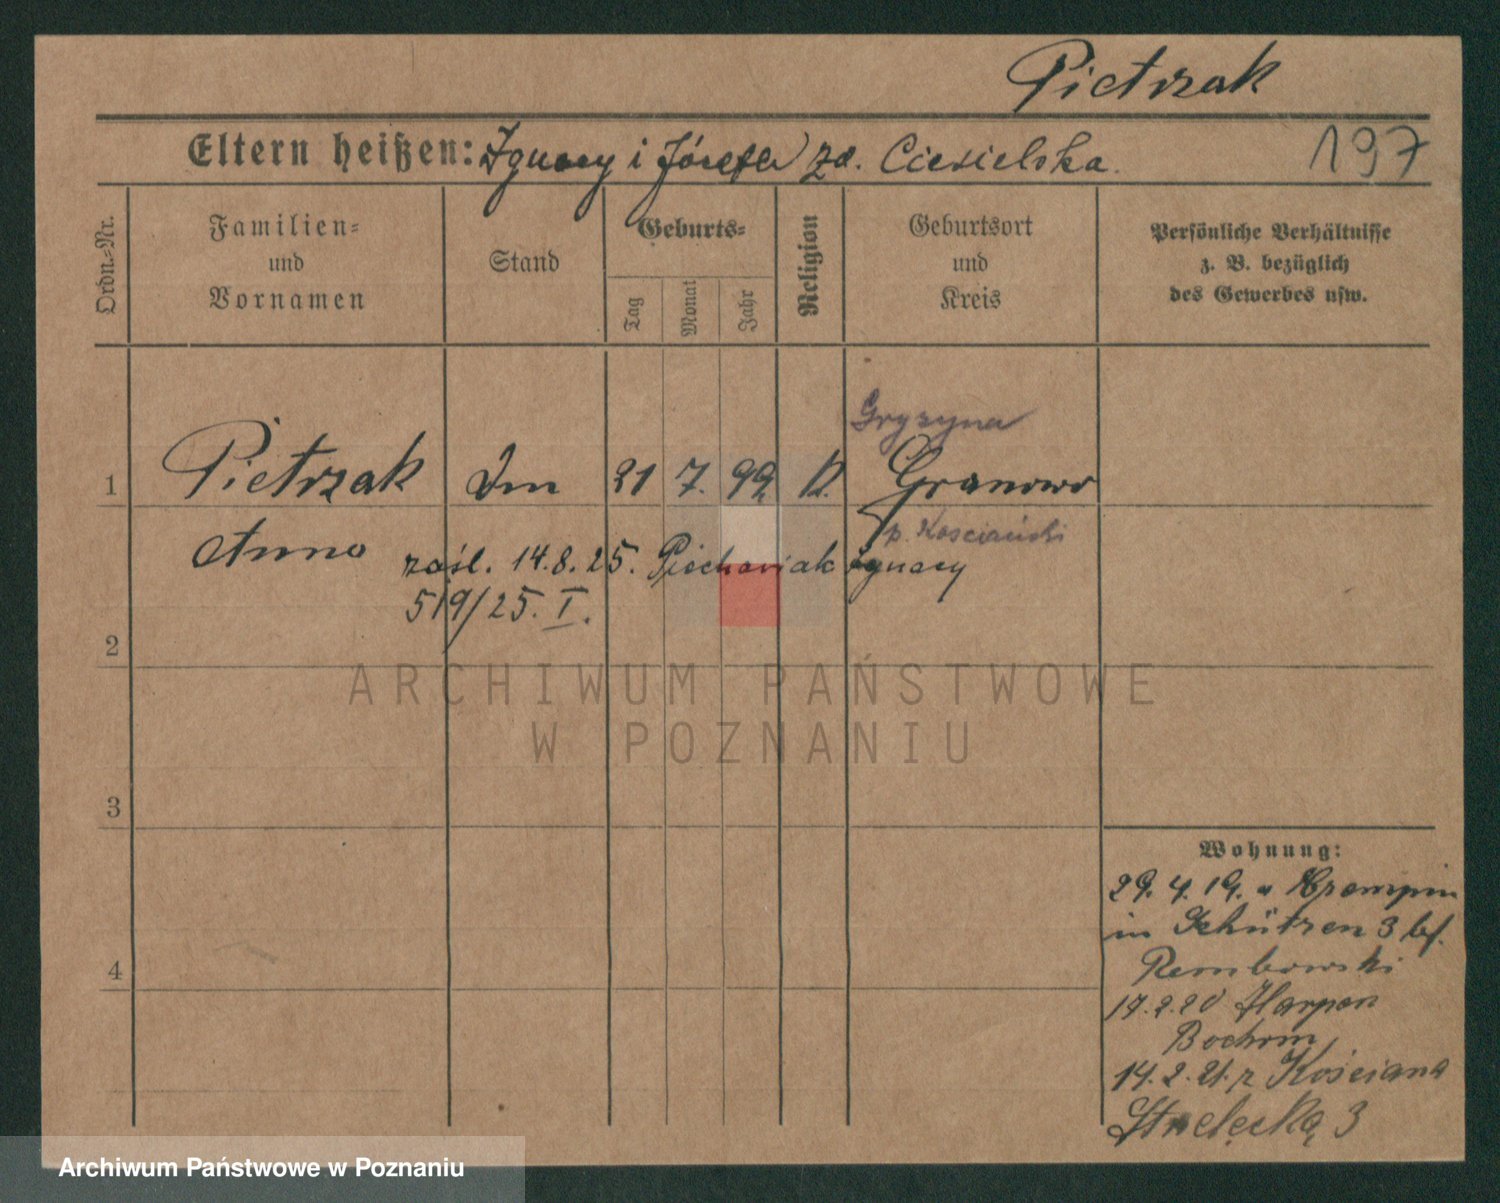 Pietrzak
Eltern heißen: Ignacy i Józefa zd. Ciesielska.
197
Ordn.-Nr.
Familien-
und
Vornamen
Stand
Geburts-
Tag
Monat
Jahr
Religion
Geburtsort
und
Kreis
Persönliche Verhältnisse
z. B. bezüglich
des Gewerbes usw.
Gryzyna
1 Pietrzak 21 7. 99 K. Granowo
p. Kosciański
Anna zaśl. 14.8.25. Piechowiak Ignacy
519/25. I.
2
3
4
Wohnung:
29. 4. 19. Krempin
in Schützen 3 bf.
Rembowski
17.2.20 Harpen
Bochum
14.2.21. z Kościana
Strzelecka 3
ARCHIWUM PAŃSTWOWE
W POZNANIU
Archiwum Państwowe w Poznaniu